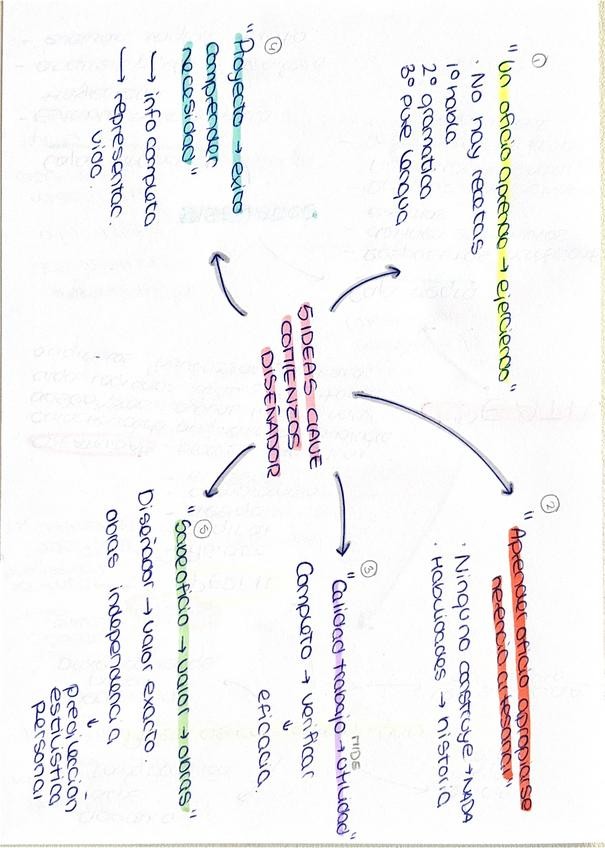 5 IDEAS CLAVE
COMIENZOS
DISEÑADOR
①
"Un oficio aprende → ejerciendo"
· No hay recetas
1º habla
2º gramática
3º pule lengua
②
"Aprender oficio apropiarse
herencia artesanal"
· Ninguno construye → NADA
· Habilidades → historia
③
MIDE
"Calidad trabajo → utilidad"
Completo → verificar
↓
eficacia
④
"Proyecto → exito
comprender
necesidad"
→ info completa
→ representar
vida.
⑤
"Sabe oficio → valor → obras"
Diseñador → valor exacto
obras independencia
↓
predilección
estilística
personal